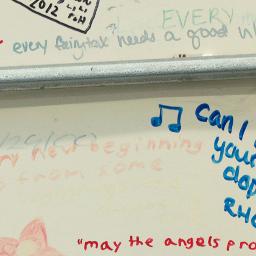 2012
EVERY
every fairytale needs a good
Can I
your
dop
RHO
ry new beginning
s from some
"may the angels pro